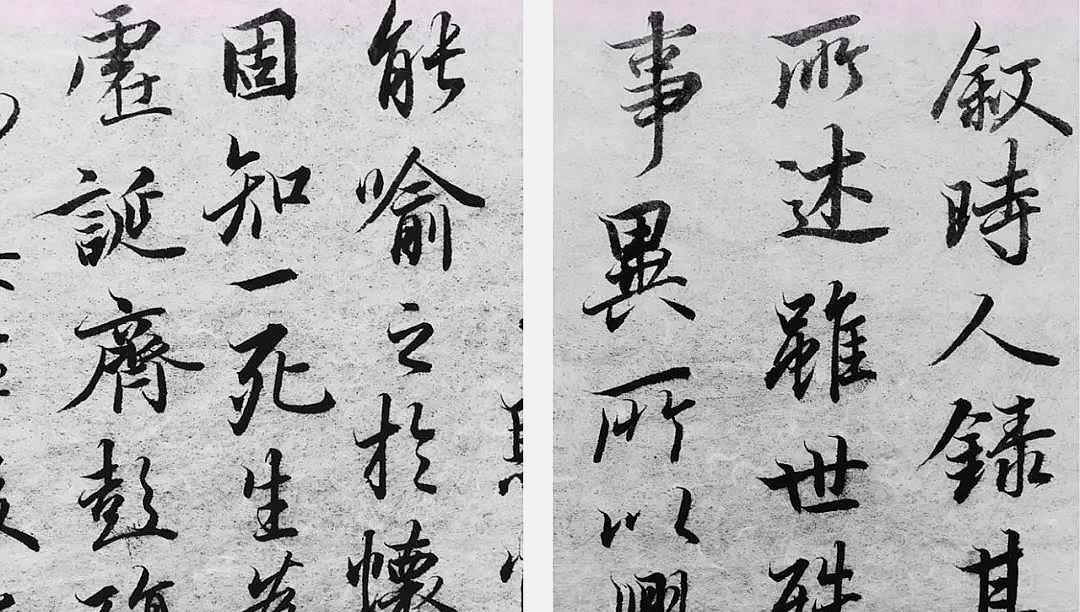 敘時人錄其
所述雖世殊
事異所以興
能喻之於懷
固知一死生為
虛誕齊彭殤